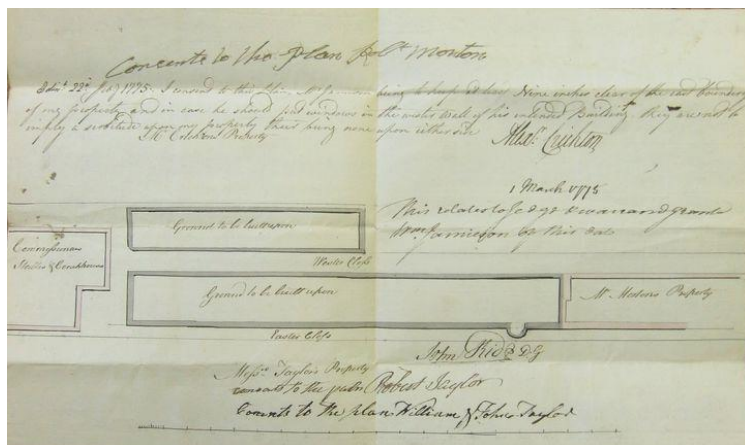 Consents to the plan Robt Morton
Edinr 22d July 1775. I consent to this plan Mr Jamieson being to keep at least Nine inches clear of the east boundary
of my property and in case he should put windows in the wester wall of his intended Building, they are not to
imply a servitude upon my property there being none upon either side
Mr Crichtons Property
Alexr Crichton
1 March 1775
This relates to
Wm Jamieson of this date
Ground to be built upon
Wester Closs
Commissioners
Stables & Coachhouses
Ground to be built upon
Mr Mortons Property
Easter Closs
John
D G
Messrs Taylors Property
consents to the plan Robert Taylor
Consents to the plan William & John Taylor